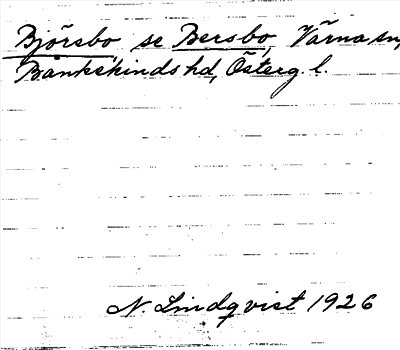 Björsbo, se Bersbo, Värna sn,
Bankekinds hd, Österg. l.
N. Lindqvist 1926